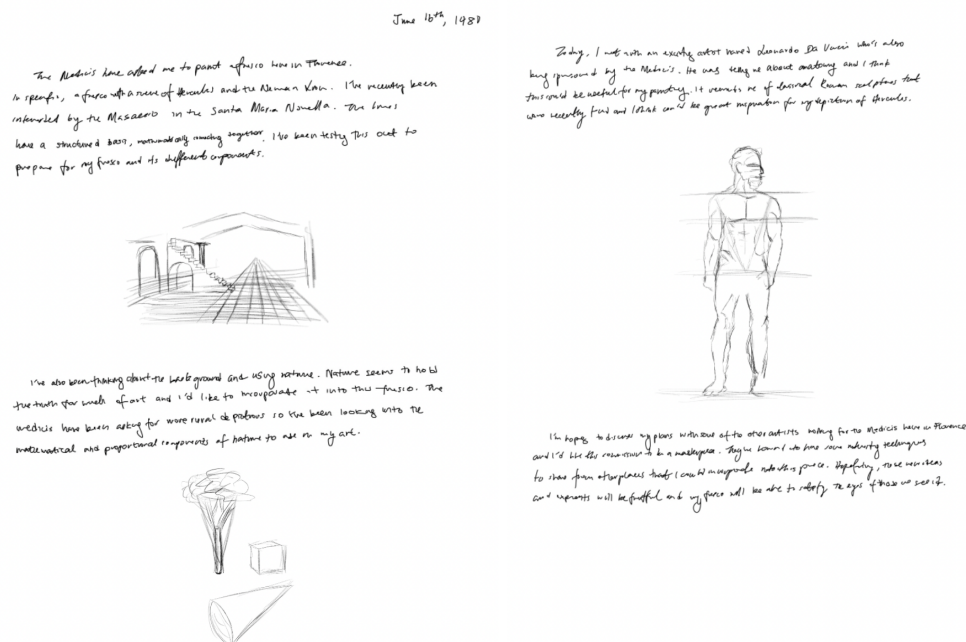 June 16th, 1981
The Medicis have asked me to paint a fresco here in Florence.
In specific, a fresco with a scene of Hercules and the Nemean Lion. I've recently been
intrigued by the Masaccio in the Santa Maria Novella. The lines
have a structured basis, mathematically coming together. I've been testing this out to
prepare for my fresco and its different components.
I've also been thinking about the background and using nature. Nature seems to hold
the truth for much of art and I'd like to incorporate it into this fresco. The
medicis have been asking for more rural depictions so I've been looking into the
mathematical and proportional components of nature to use in my art.
Today, I met with an exciting artist named Leonardo Da Vinci who's also
being sponsored by the Medicis. He was telling me about anatomy and I think
this could be useful for my painting. It reminds me of classical Roman sculptures that
were recently found and I think could be great inspiration for my depiction of Hercules.
I'm hoping to discuss my plans with some of the other artists working for the Medicis here in Florence
and I'd like this commission to be a masterpiece. They're bound to have some interesting techniques
to share from other places that I could incorporate into this piece. Hopefully, these new ideas
and experiments will be fruitful and my fresco will be able to satisfy the eyes of those who see it.